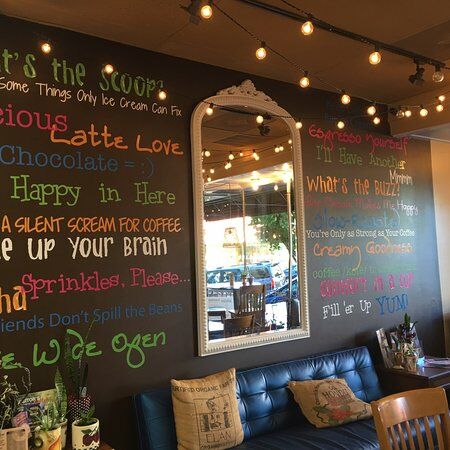 t's the Scoop?
Some Things Only Ice Cream Can Fix
cious
Latte Love
Chocolate = :)
Happy in Here
A SILENT SCREAM FOR COFFEE
e up Your Brain
Sprinkles, Please...
ha
riends Don't Spill the Beans
e Wide Open
Espresso Yourself
I'll Have Another
Mmmm
What's the Buzz?
Makes Me Happy
You're Only as Strong as Your Coffee
Creamy Goodness
in a Cup
Fill 'er Up
YUM!